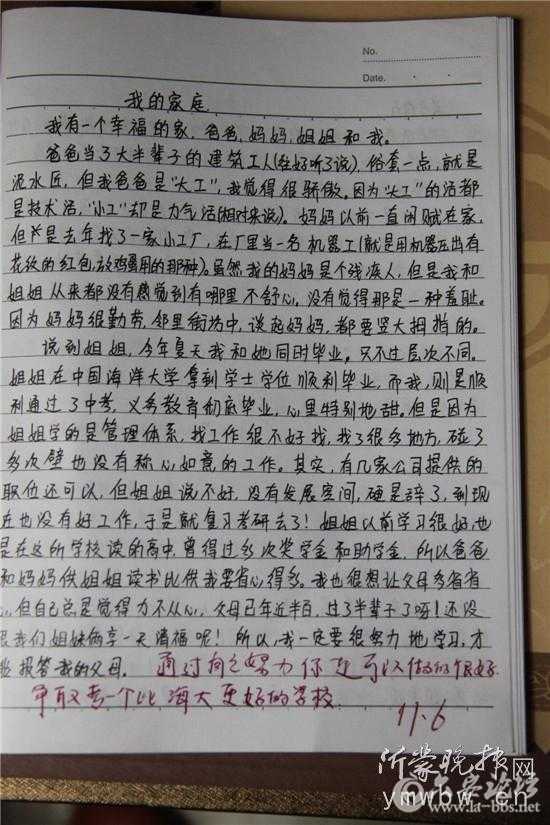 No.
Date.
我的家庭
我有一个幸福的家。爸爸,妈妈,姐姐和我。
爸爸当了大半辈子的建筑工人(往好听了说),俗套一点,就是
泥水匠,但我爸爸是“大工”,我觉得很骄傲。因为“大工”的活都
是技术活,“小工”却是力气活(相对来说)。妈妈以前一直闲赋在家,
但是去年找了一家小工厂,在厂里当一名机器工(就是用机器压出有
花纹的红包,放鸡蛋用的那种)。虽然我的妈妈是个残疾人,但是我和
姐姐从来都没有感觉到有哪里不舒心,没有觉得那是一种羞耻。
因为妈妈很勤劳,邻里街坊中,谈起妈妈,都要竖大拇指的。
说到姐姐,今年夏天我和她同时毕业。只不过层次不同。
姐姐在中国海洋大学拿到学士学位顺利毕业,而我,则是顺
利通过了中考,义务教育彻底毕业,心里特别地甜。但是因为
姐姐学的是管理体系,找工作很不好找,找了很多地方,碰了
多次壁也没有称心如意的工作。其实,有几家公司提供的
职位还可以,但姐姐说不好,没有发展空间,硬是辞了,到现
在也没有好工作,于是就复习考研去了!姐姐以前学习很好,也
是在这所学校读的高中,曾得过多次奖学金和助学金,所以爸爸
和妈妈供姐姐读书比供我要省心得多。我也很想让父母多省省
心,但自己总是觉得力不从心,父母已年近半百,过了半辈子了呀!还没
跟我们姐妹俩享一天清福呢!所以,我一定要很努力地学习,才
能报答我的父母。通过自己努力你还可以做的很好.
争取考一个比海大更好的学校.
11.6
沂蒙晚报网
ymwbw.cn
www.la-bbs.net